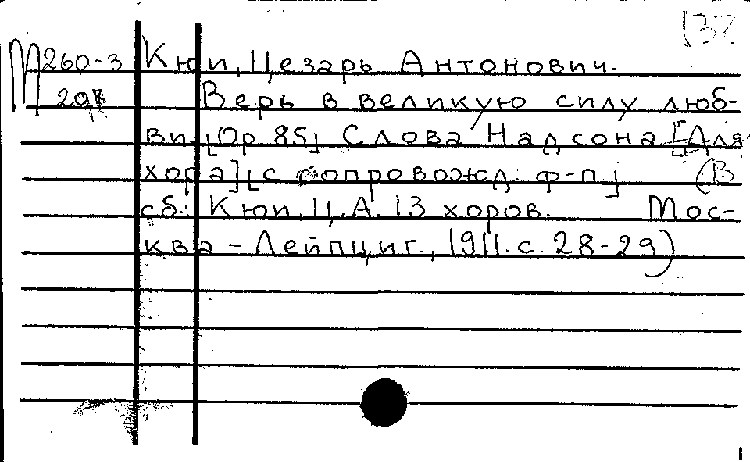 132
М 260-3 Кюи, Цезарь Антонович.
Верь в великую силу люб-
ви. [Op. 85] Слова Надсона [Для
хора] [с сопровожд. ф-п] (В
сб: Кюи, Ц.А. 13 хоров. Мос-
ква - Лейпциг, 1911. с. 28-29)